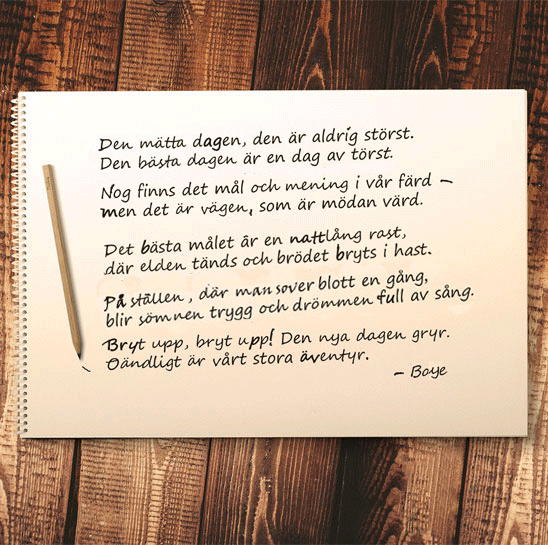 Den mätta dagen, den är aldrig störst.
Den bästa dagen är en dag av törst.
Nog finns det mål och mening i vår färd –
men det är vägen, som är mödan värd.
Det bästa målet är en nattlång rast,
där elden tänds och brödet bryts i hast.
På ställen, där man sover blott en gång,
blir sömnen trygg och drömmen full av sång.
Bryt upp, bryt upp! Den nya dagen gryr.
Oändligt är vårt stora äventyr.
– Boye